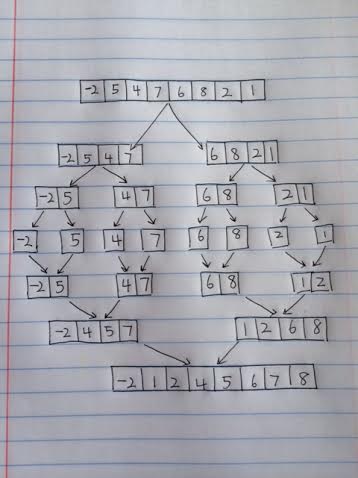 -2 5 4 7 6 8 2 1
-2 5 4 7 6 8 2 1
-2 5 4 7 6 8 2 1
-2 5 4 7 6 8 2 1
-2 5 4 7 6 8 1 2
-2 4 5 7 1 2 6 8
-2 1 2 4 5 6 7 8